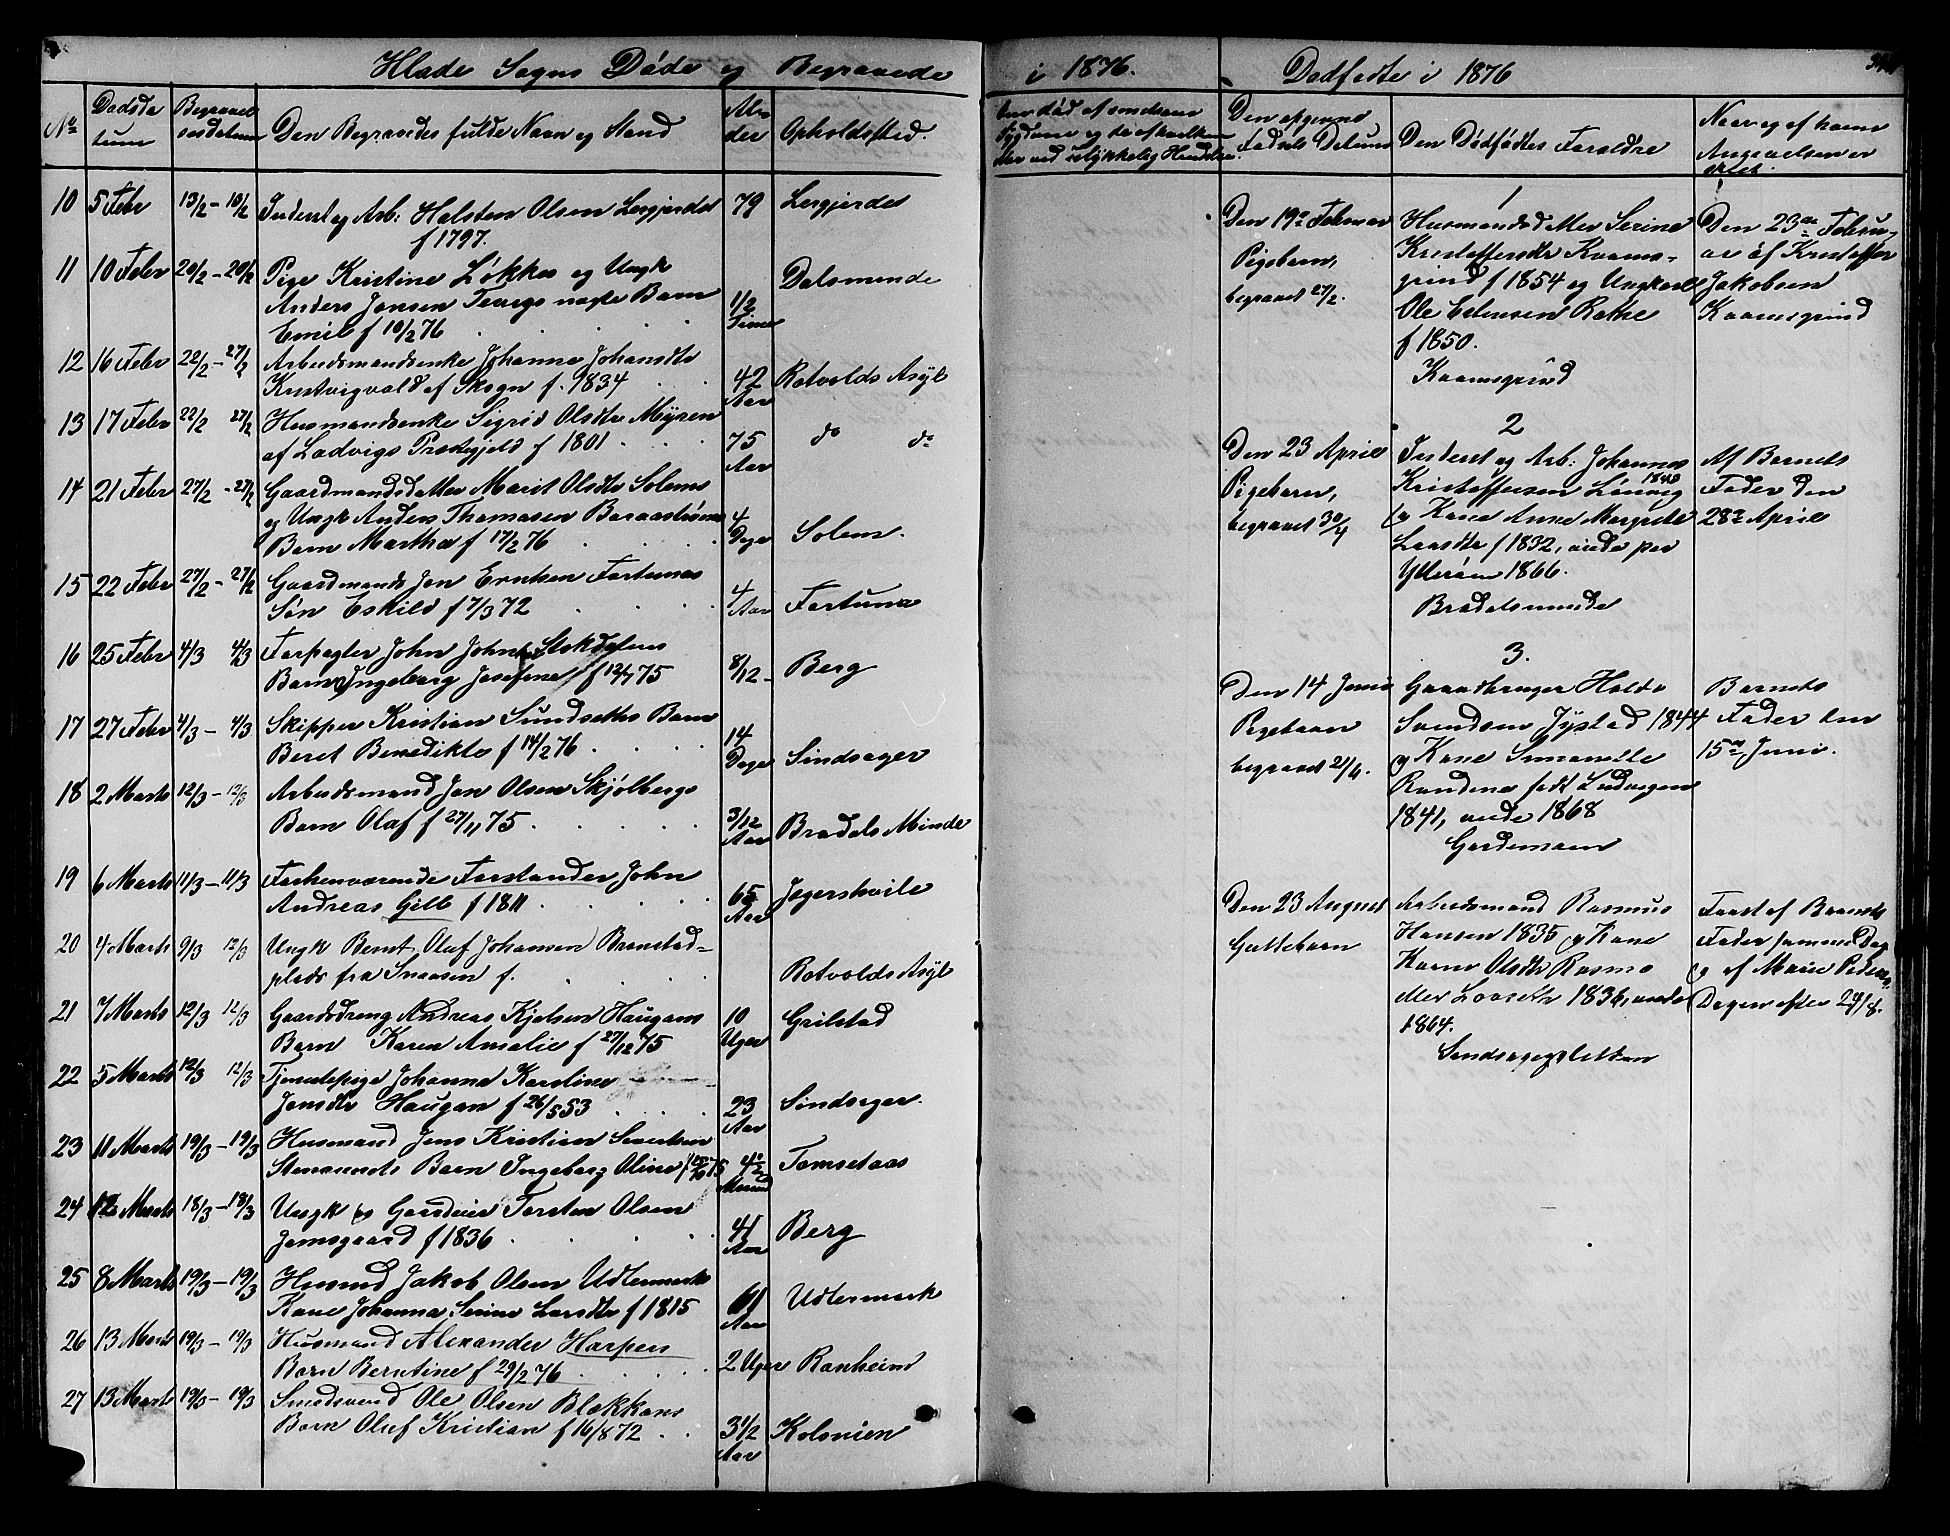 Hlade Sogns Døde og Begravede
i 1876.
Dødfødte i 1876
No
Dødsda
tum
Begravel
sesdatum
Den Begravedes fulde Navn og Stand
Al-
der
Opholdssted
10 5 Febr 13/2 - 10/2 Inderst og Arb: Halsten Olsen Lergjerdet 79 Lergjerdet
f 1797.
11 10 Febr 20/2 - 20/2 Pige Kristine Løkkes og Ungk
Anders Jensen uægte Barn 1/2 Dalsminde
Emil f 10/2 76 Time
12 16 Febr 22/2 - 27/2 Arbeidsmandsenke Johanna Johansdtr
af Skogn f. 1834 42 Rotvolds Asyl
Aar
13 17 Febr 22/2 27/2 Husmandsenke Sigrid Olsdtr Myren
af Ladvigs Præstegjeld f 1801 75 do do
Aar
14 21 Febr 27/2 - 27/2 Gaardmandsdatter Marit Olsdtr Solems
og Ungk Anders Thomasen 4
Barn Martha f 17/2 76 Dage Solem.
15 22 Febr 27/2 - 27/2 Gaardmands Jon Erntsen Fortunas
Søn Eskild f 7/3 72 4 Aar Fortuna
16 25 Febr 4/3 4/3 Forpagter John Johns Stokdalens
Barn Ingeborg Josefine f 12/7 75 8/12 Berg
17 27 Febr 4/3 - 4/3 Skipper Kristian Sundseths Barn
Beret Benedikte f 14/2 76 14 Dage Sindsager
18 2 Marts 12/3 - 12/3 Arbeidsmand Jon Olsen Skjølbergs
Barn Olaf f 27/11 75 3/12 Aar Brødels Minde
19 6 Marts 11/3 - 11/3 Forhenværende Forstander John
Andreas Gell f 1811 65 Aar Jegershvile
20 4 Marts 9/3 12/3 Ungk Bernt Olaf Johansen Brønstad-
plads fra Snaasen f. Rotvolds Asyl
21 7 Marts 12/3 12/3 Gaardsdreng Andreas Kjelsen Haugans
Barn Karen Amalie f 27/12 75 10 Uger Grilstad
22 5 Marts 12/3 12/3 Tjenestepige Johanna Karoline
Jonsdtr Haugan f 26/5 53 23 Aar Sindsager.
23 11 Marts 19/3 - 19/3 Husmand Jens Kristian Sivertsen
Barn Ingeborg Oline f 75 Tomsetaas
24 12 Marts 18/3 - 18/3 Ungk og Torsten Olsen
Jamsgaard f 1836 41 Aar Berg
25 8 Marts 19/3 - 19/3 Husmd Jakob Olsen Udlermarks
Kone Johanna Serine Larsdtr f 1815 61 Aar Udlermark
26 13 Marts 19/3 - 19/3 Husmand Alexander Harpers
Barn Berntine f 29/2 76 2 Uger Ranheim
27 13 Marts 19/3 - 19/3 Smedsvend Ole Olsen Blækkans
Barn Oluf Kristian f 16/8 72 3 1/2 Aar Kolonien
Den afgrens
Fødsels Datum
Den Dødfødtes Forældre
Naar og af hvem
Anmeldelsen er
skeet.
1
Den 19de Februar
Pigebarn,
begravet 27/2.
Husmandsdatter Serine
Kristoffersdtr Kaams-
grind f 1854 og Ungkarl
Ole Estensen Rothe
f 1850.
Kaamsgrind
Den 23de Febru-
ar af Kristoffer
Jakobsen
Kaamsgrind
2
Den 23 April
Pigebarn,
begravet 30/4
Inderst og Arb: Johannes
Kristoffersen Lønvig 1840
og Kone Anne Margrete
Larsdtr f 1832, viede paa
Ytterøen 1866.
Brødelsminde
Af Barnets
Fader den
28de April
3.
Den 14 Juni
Pigebarn
begravet 21/6.
Gaardbruger Haldo
Svendsen Jystad 1844
og Kone Emanuelle
Randine født Ludvigsen
1841, viede 1868
Gardemoen
Barnets
Fader den
15de Juni.
Den 23 August
Guttebarn
Arbeidsmand Rasmus
Hansen 1835 og Kone
Karen Olsdtr Rasmo
eller Laaseth 1836, viede
1864.
Sindsagersletten
Først af Barnets
Fader samme Dag
og af Marie Peders
Dagen efter 24/8.